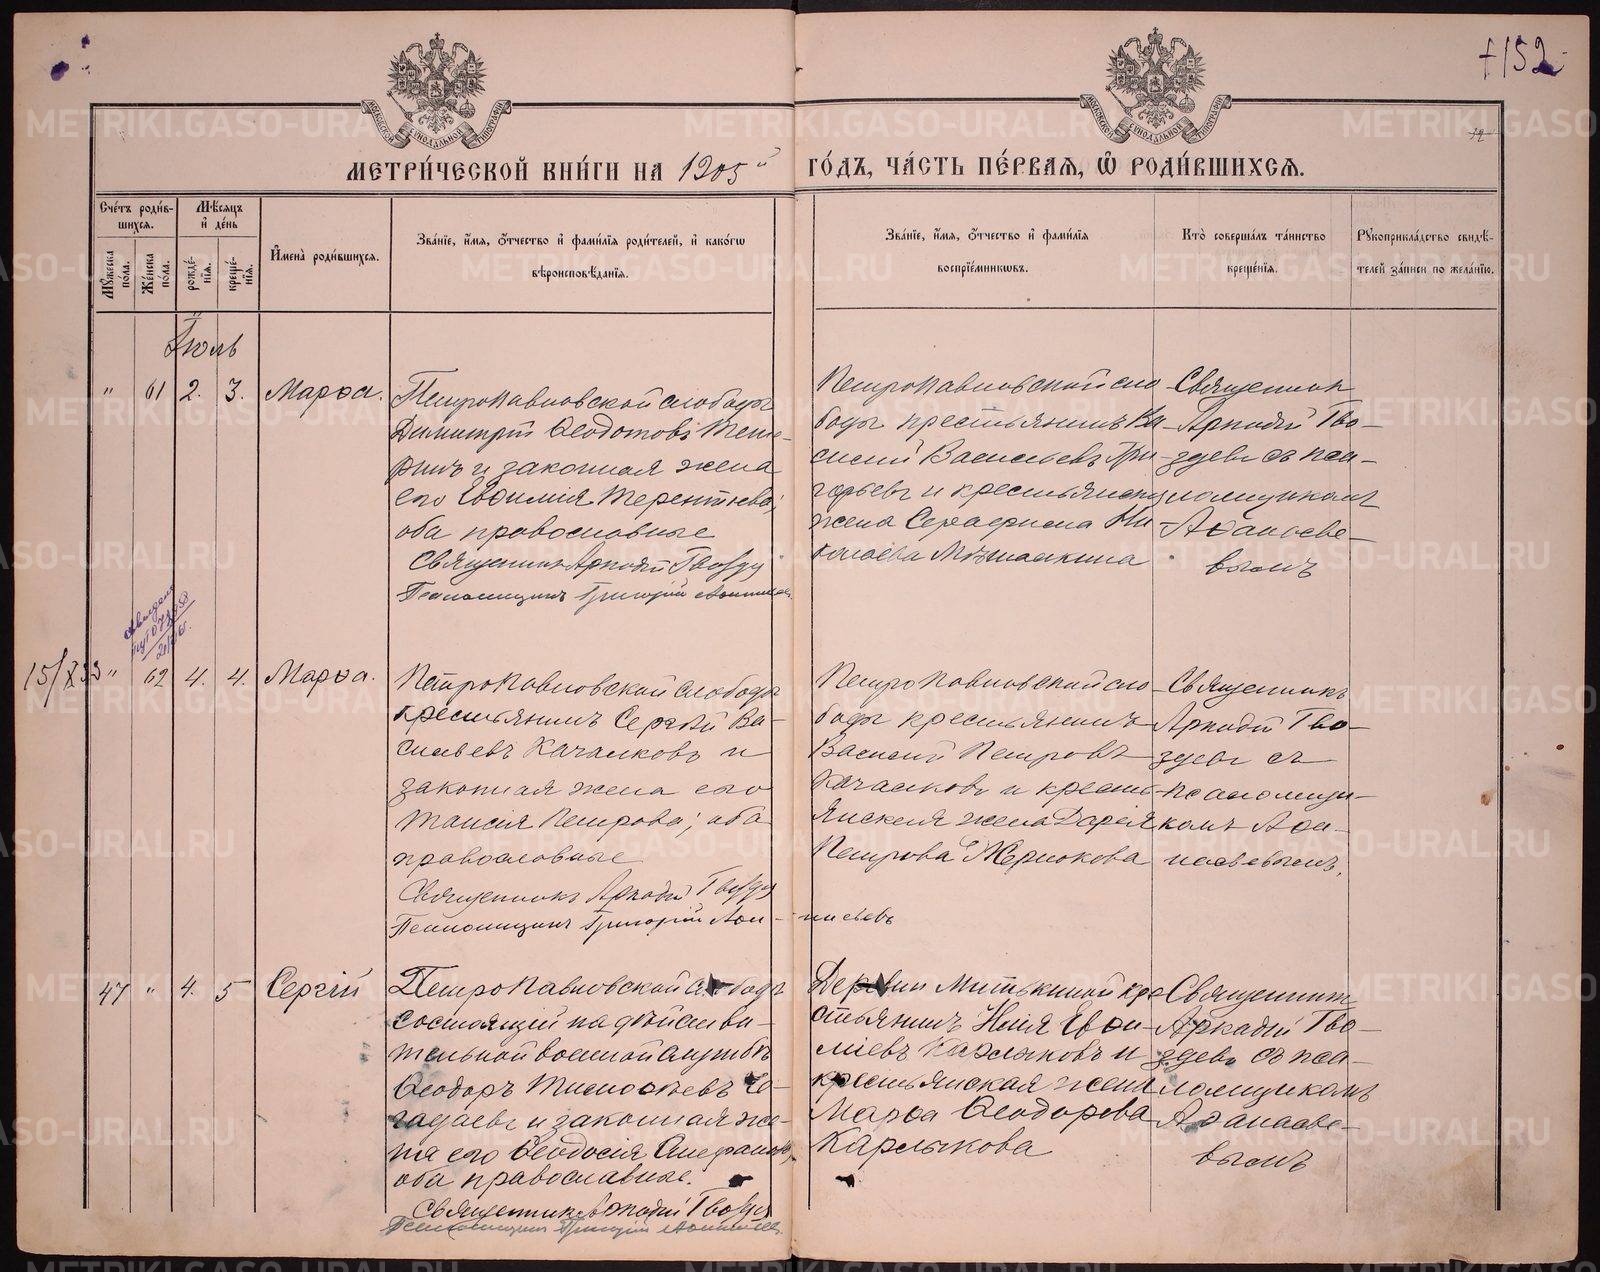 152
МЕТРИ́ЧЕСКОЙ КНИ́ГИ НА 1905й ГО́ДЪ, ЧА́СТЬ ПЕ́РВАѦ, Ѽ РОДИ́ВШИХСѦ.
Сче́тъ роди́вшихсѧ.
Мꙋ́жеска по́ла.
Же́нска по́ла.
Мѣ́сѧцъ и҆ де́нь
рожде́нїѧ.
креще́нїѧ.
И҆мена̀ роди́вшихсѧ.
Зва́нїе, и҆́мѧ, ѻ҆́тчество и҆ фами́лїѧ роди́телей, и҆ како́гѡ
вѣроисповѣ́данїѧ.
Зва́нїе, и҆́мѧ, ѻ҆́тчество и҆ фами́лїѧ
воспрїе́мникѡвъ.
Кто̀ соверша́лъ та́инство
креще́нїѧ.
Рꙋкоприкла́дство свидѣ́-
телей за́писи по жела́нїю.
Іюль
" 61 2. 3. Марѳа.
Петропавловской слободы
Димитрій Ѳеодотовъ
и законная жена
его Евѳимія Терентьева;
оба православные
Священникъ Аркадій Гвоздевъ
Псаломщикъ Григорій
Петропавловской сло-
боды крестьянинъ Ва-
силій Васильевъ Гри-
горьевъ и крестьянская
жена Серафима Ни-
колаева
Священникъ
Аркадій Гво-
здевъ съ пса-
ломщикомъ
Аѳанасье-
вымъ
15/X 33 " 62 4. 4. Марѳа.
Петропавловской слободы
крестьянинъ Сергѣй Ва-
сильевъ Качалковъ и
законная жена его
Таисія Петрова; оба
православные
Священникъ Аркадій Гвоздевъ
Псаломщикъ Григорій Аѳа-насьевъ
Петропавловской сло-
боды крестьянинъ
Василій Петровъ
Качалковъ и кресть-
янская жена Дарія
Петрова
Священникъ
Аркадій Гво-
здевъ съ
псаломщи-
комъ Аѳа-
насьевымъ.
47 " 4. 5 Сергій
Петропавловской слободы
состоящій на дѣйстви-
тельной военной службѣ
Ѳеодоръ Тимоѳеевъ
и законная же-
на его Ѳеодосія
оба православные.
Священникъ Аркадій Гвоздевъ
Псаломщикъ Григорій
Деревни Митькиной кре-
стьянинъ Илія Евѳи-
міевъ Карлыковъ и
крестьянская жена
Марѳа Ѳеодорова
Карлыкова
Священникъ
Аркадій Гво-
здевъ съ пса-
ломщикомъ
Аѳанасье-
вымъ
METRIKI.GASO-URAL.RU